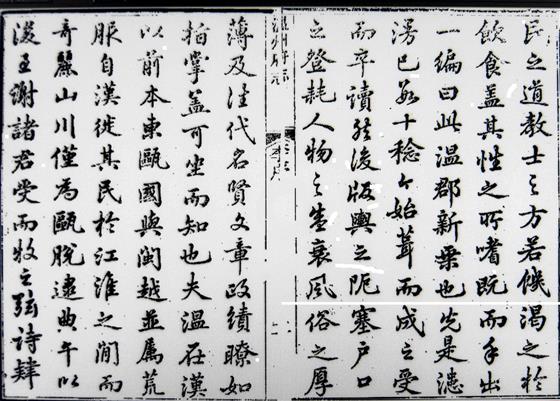 民之道教士之方若渴之於
飲食蓋其性之所嗜既而手出
一編曰此溫郡新乘也先是漶
漫已數十稔今始葺而成之受
而卒讀然後版輿之阨塞戶口
之登耗人物之盛衰風俗之厚
溫州府志
薄及往代名賢文章政績瞭如
指掌蓋可坐而知也夫溫在漢
以前本東甌國與閩越並屬荒
服自漢徙其民於江淮之間而
奇麗山川僅為甌脫逮典午以
後王謝諸君受而牧之弦詩肄